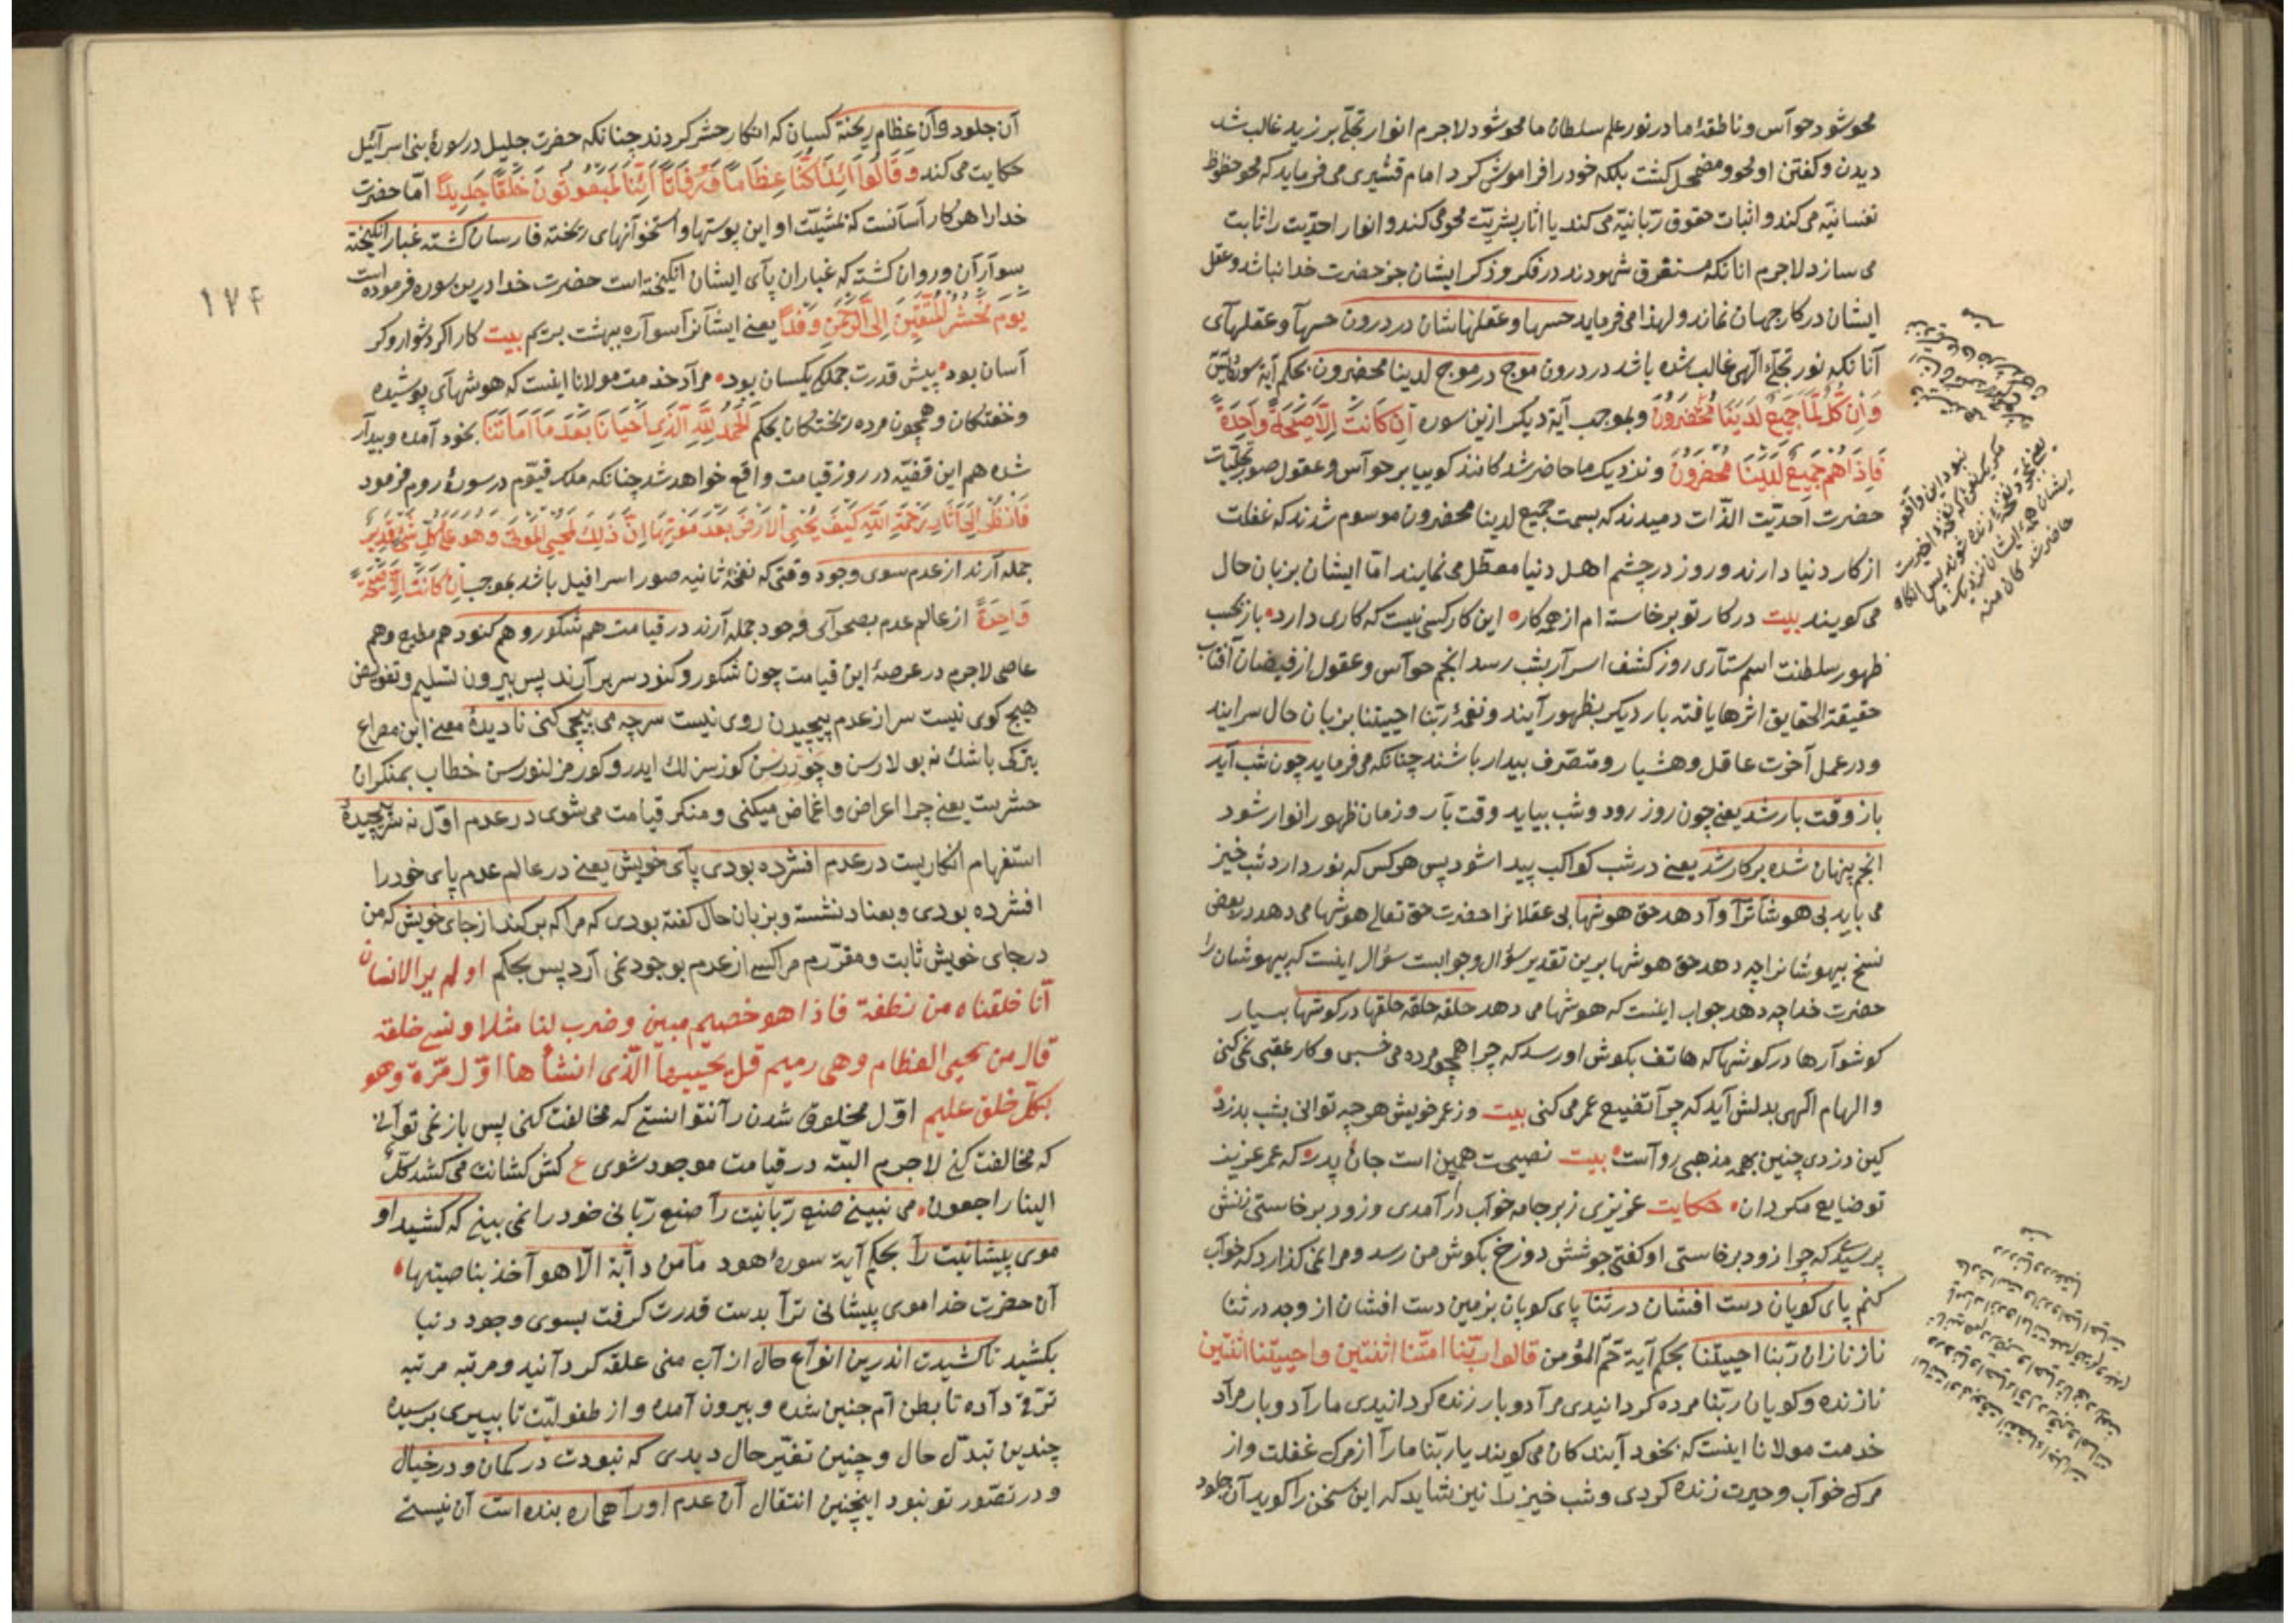 محو شود حوآس و ناطقهٔ ما در نور علم سلطان ما محو شود لاجرم انوار تجلّے بر زید غالب شد
دیدن و کفتن او محو و مضمحل کشت بلکه خود را فراموش کرد امام قشیری می فرماید که محو حظوظ
نفسانیّه می کند و اثبات حقوق ربّانیّه می کند یا اثار بشریّت محو می کند و انوار احدّیت را ثابت
می سازد لاجرم انانکه مستغرق شهودند در فکر و ذکر ایشان جز حضرت خدا نباشد و عقل
ایشان در کار جهان نماند و لهذا می فرماید حسها و عقلهاشان در درون حسهآ و عقلهآی
آنانکه نور تجلّے الٓهی غالب شده باشد در درون موج در موج لدینا محضرون بحکم آیهٔ سورهٔ یٰسٓ
وَاِن كُلٌّ لَمَّا جَمِيعٌ لَدَيْنَا مُحْضَرُونَ و بموجب آیة دیکر ازین سوره اِن كَانَتْ اِلَّا صَيْحَةً وَاحِدَةً
فَاِذَا هُمْ جَمِيعٌ لَدَيْنَا مُحْضَرُونَ و نزدیک ما حاضر شدکانند کوییا بر حوآس و عقول صور تجلّیات
حضرت احدیّت الذّات دمیدند که بسمت جمیع لدینا محضرون موسوم شدند که غفلت
از کار دنیا دارند و روز در چشم اهل دنیا معطّل می نمایند امّا ایشان بزبان حال
می کویند بیت در کار تو برخاسته ام از همه کار این کار کسی نیست که کاری دارد باز بحسب
ظهور سلطنت اسم ستآری روز کشف اسرآر بشب رسد انجم حوآس و عقول از فیضان آفتاب
حقیقة الحقایق اثرها یافته بار دیکر بظهور آیند و نغمهٔ ربّنا احییتنا بزبان حال سرایند
و در عمل آخرت عاقل و هشیار و متصّرف بیدار باشند چنانکه می فرماید چون شب آید
باز وقت بار شد یعنے چون روز رود و شب بیاید وقت بآر و زمان ظهور انوار شود
انجم پنهان شده بر کار شد یعنے در شب کواکب پیدا شود پس هر کس که نور دارد شب خیز
می باید بی هوشآنرآ وآدهد حق هوشها بی عقلانرا حضرت حق تعالی هوشها می دهد در بعض
نسخ بیهوشانرا چه دهد حق هوشها برین تقدیر سؤال و جوابست سؤال اینست که بیهوشان را
حضرت خدا چه دهد جواب اینست که هوشها می دهد حلقه حلقه حلقها در کوشها بسیار
کوشوآرها در کوشها که هاتف بکوش او رسد که چرا همچو مرده می خسبی و کار عقبی نمی کنی
و الهام الٓهی بدلش آید که چرآ تضییع عمر می کنی بیت وز عمر خویش هر چه توانی بشب بدزد
کین دزدی چنین بهمه مذهبی روآست بیت نصیحت همین است جان پدر که عمر عزیز
تو ضایع مکردان حکایت عزیزی زیر جامه خوآب درآمدی و زود برخاستی زنش
پرسید که چرا زود برخاستی او کفتی جوشش دوزخ بکوش من رسد و مرا نمی کذارد که خوآب
کنم پای کوپان دست افشان در ثنا پای کوپان بزمین دست افشان از وجد در ثنا
ناز نازان ربّنا احییتنا بحکم آیهٔ حٓم المؤمن قالوا ربّنا امتّنا اثنتین و احییتنا اثنتین
نازنده و کویان ربّنا مرده کردانیدی مرآ دوبار زنده کردانیدی مارآ دوبار مرآد
خدمت مولانا اینست که بخود آیندکان می کویند یا ربّنا مارآ از مرک غفلت و از
مرک خوآب و حیرت زنده کردی و شب خیز را نیز شاید که این سخن را کوید آن جلود
نبود این واقعه
مکر یک نفخ که نفخهٔ اخیرست
ایشان همه ایشان نزدیک ما
حاضر شدکان منه
١٧٤
آن جلود و آن عظام ریخته کسان که انکار حشر کردند چنانکه حضرت جلیل در سورهٔ بنی اسرآئیل
حکایت می کند وَ قَالُوا اَئِذَا كُنَّا عِظَامًا وَ رُفَاتًا اَئِنَّا لَمَبْعُوثُونَ خَلْقًا جَدِيدًا امّا حضرت
خدا را هر کار آسانست که بمشیّت او این پوستها و استخوآنهای ریخته فارسان کشته غبار انکیخته
سوآرآن و روان کشته که غبار ان پآی ایشان انکیخته است حضرت خدا درین سوره فرموده است
يَوْمَ نَحْشُرُ الْمُتَّقِينَ اِلَى الرَّحْمٰنِ وَفْدًا یعنے ایشانرآ سوآره ببهشت بریم بیت کار اکر دشوار و کر
آسان بود پیش قدرت جملکی یکسان بود مرآد خدمت مولانا اینست که هوشهآی پوشیده
و خفتکان و همچون مرده ریختکان بحکم اَلْحَمْدُ لِلّٰهِ الَّذِی اَحْیَانَا بَعْدَ مَا اَمَاتَنَا بخود آمده و بیدآر
شده هم این قضّیه در روز قیامت واقع خواهد شد چنانکه ملک قیّوم در سورهٔ روم فرمود
فَانْظُرْ اِلَى آثَارِ رَحْمَةِ اللّٰهِ كَيْفَ يُحْيِي الْاَرْضَ بَعْدَ مَوْتِهَا اِنَّ ذٰلِكَ لَمُحْيِي الْمَوْتٰى وَهُوَ عَلٰى كُلِّ شَيْءٍ قَدِيرٌ
جمله آرند از عدم سوی وجود وقتی که نفخهٔ ثانیه صور اسرافیل باشد بموجب اِن كَانَتْ اِلَّا صَيْحَةً
وَاحِدَةً از عالم عدم بصحرآئی وجود جمله آرند در قیامت هم شکور و هم کنود هم مطیع و هم
عاصی لاجرم در عرصهٔ این قیامت چون شکور و کنود سر بر آرند پس بیرون تسلیم و تفویض
هیچ کوی نیست سر از عدم پیچیدن روی نیست سر چه می پیچی کنی نادیدهٔ معنے این مصراع
بترکی باشك نه بولارسن و چوندرسن کوزسزلك ایدر و کورمزلنورسن خطاب بمنکران
حشریت یعنے چرا اعراض و اغماض میکنی و منکر قیامت می شوی در عدم اوّل نه سر پیچیدهٔ
استفهام انکاریست در عدم افشرده بودی پآی خویش یعنے در عالم عدم پای خود را
افشرده بودی و بعناد نشسته و بزبان حال کفته بودی که مرا که برکند از جای خویش که من
در جای خویش ثابت و مقرّرم مرا کسے از عدم بوجود نمی آرد پس بحکم اولم یر الانسان
انّا خلقناه من نطفة فاذا هو خصیم مبین و ضرب لنا مثلا و نسے خلقه
قال من یحیی العظام و هی رمیم قل یحییها الّذی انشأها اوّل مرّة و هو
بکلّ خلق علیم اوّل مخلوق شدن رآ نتوانستے که مخالفت کنی پس باز نمی توآنے
که مخالفت کنے لاجرم البتّه در قیامت موجود شوی ع کش کشانت می کشد کلٌّ
الینا راجعون می نبینے صنع ربّانیت رآ صنع ربّانی خود را نمی بینے که کشید او
موی پیشانیت رآ بحکم آیهٔ سورهٔ هود ما من دآبّة الّا هو آخذ بناصیتها
آن حضرت خدا موی پیشانی ترآ بدست قدرت کرفت بسوی وجود دنیا
بکشید تا کشیدت اندرین انوآع حال از آب منی علقه کردآنید و مرتبه مرتبه
ترقّے دآده تا بطن اُم جنین شده و بیرون آمده و از طفولیّت تا بپیری برسیده
چندین تبدّل حال و چنین تغیّر حال دیدی که نبودت در کمان و در خیال
و در تصّور تو نبود اینچنین انتقال آن عدم اورا هماره بنده است آن نیستے